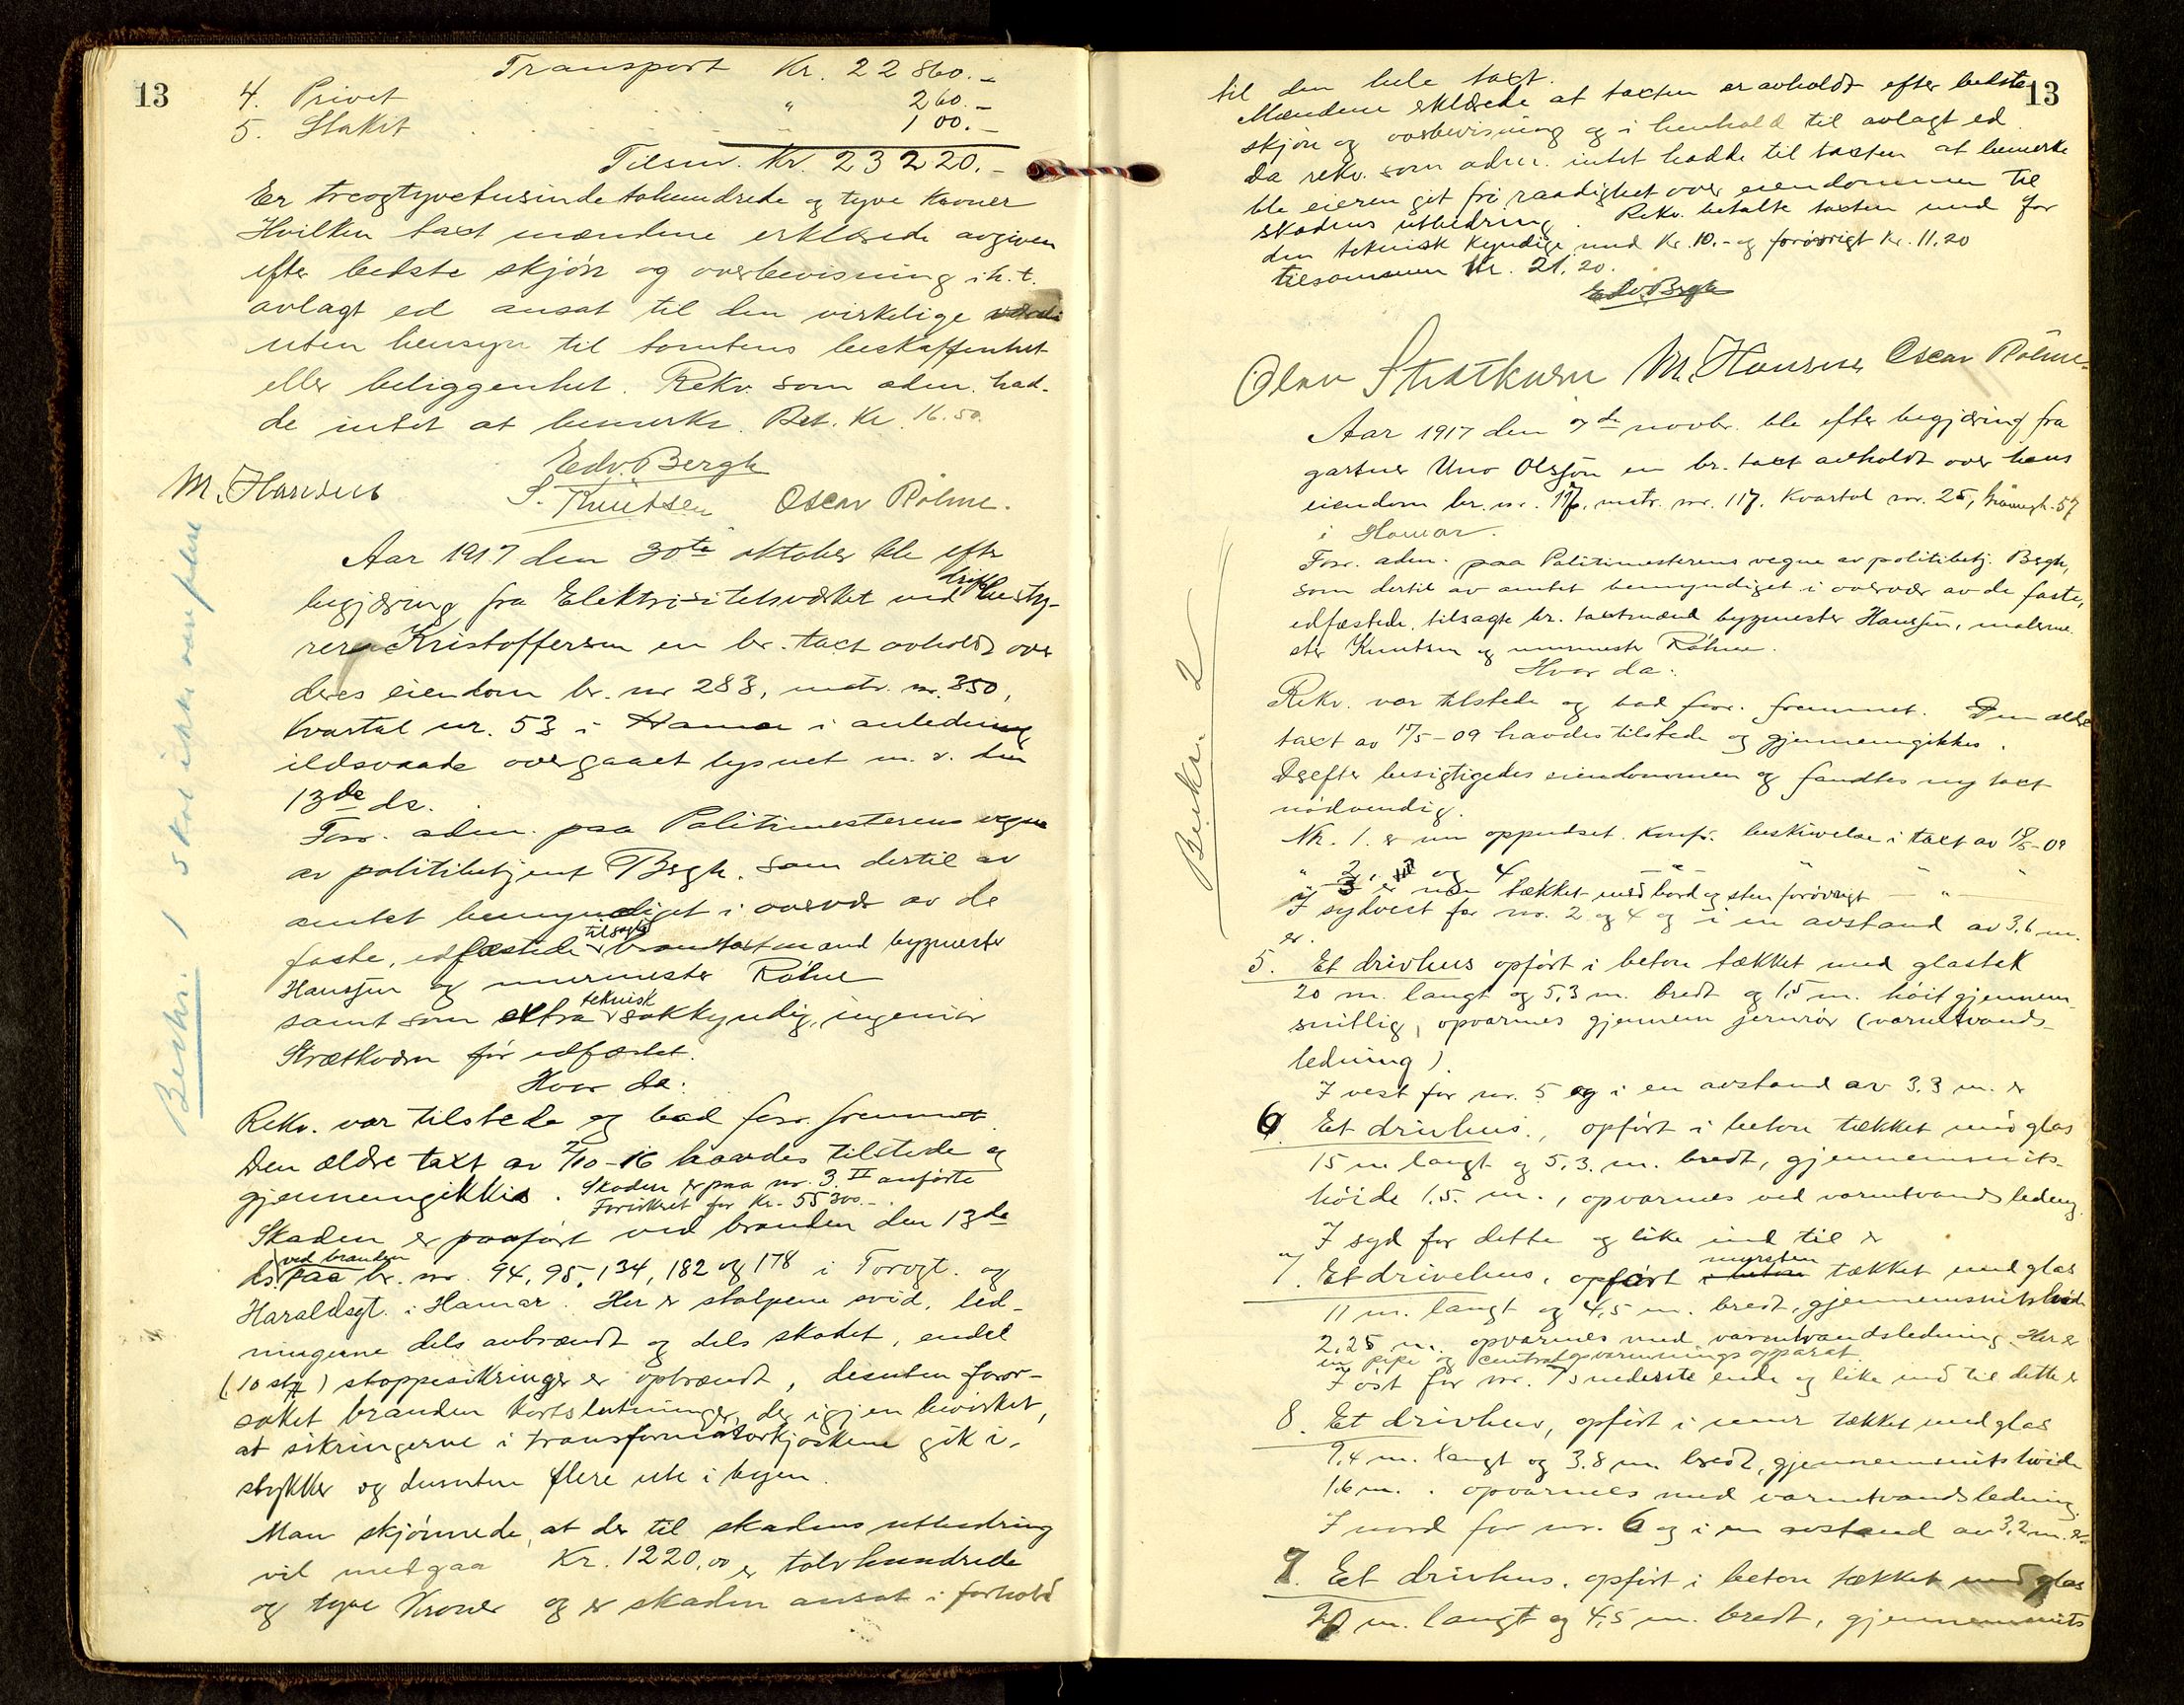 13
Transport Kr. 22 860.-
4. Privet " 260.-
5. Stakit . . . . . " 100.-
Tilsm. Kr. 23 220.-
Er treogtyvetusinde tohundrede og tyve Kroner
Hvilken taxt mændene erklærede avgiven
efter bedste skjøn og overbevisning i h. t.
avlagt ed ansat til den virkelige værdi
uten hensyn til tomtens beskaffenhet
eller beliggenhet. Rekv. som adm. had-
de intet at bemerke. Bet. Kr. 16.50.
Edv. Bergh
M. Hansen S. Knutsen Oscar Röhne.
Aar 1917 den 30te oktober ble efter
begjæring fra Elektrisitetsverket ved drifts besty-
rer Kristoffersen en br. taxt avholdt over
deres eiendom br. nr 283, matr. nr. 350,
Kvartal nr. 53 i Hamar i anledning
ildsvaade overgaaet lysnet m. v. den
13de ds.
Forr. adm. paa Politimesterens vegne
av politibetjent Bergh, som dertil av
amtet bemyndiget i overvær av de
faste, edfæstede tilsagte branntaxtmænd bygmester
Hanssen og murmester Röhne
samt som extra teknisk sakkyndig, ingeniør
Strætkvern før edfæstet.
Hvor da:
Rekv. var tilstede og bad forr. fremmet
Den ældre taxt av 2/10-16 havdes tilstede og
gjennemgikkes. Skaden er paa nr. 3. II anførte
Forsikret for Kr. 55300.-
Skaden er paaført ved branden den 13de
ds. ved branden paa br. nr. 94, 95, 134, 182 og 178 i Torvgt. og
Haraldsgt. i Hamar. Her er stolpene svid, led-
ningerne dels avbrændt og dels skadet, endel
(10 stk) stoppesikringer er opbrændt, desuten foror-
saket branden kortslutninger, der igjen bevirket,
at sikringerne i transformatorkjoskene gik i,
stykker og desuten flere ute i byen.
Man skjønnede, at der til skadens utbedring
vil medgaa Kr. 1220,00 er tolvhundrede
og tyve Kroner og er skaden ansat i forhold
Beskr. 1 skal ikke være flere
13
til den hele taxt.
Mændene erklærede at taxten er avholdt efter bedste
skjøn og overbevisning og i henhold til avlagt ed
Da rekv. som adm. intet hadde til taxten at bemerke
ble eieren git fri raadighet over eiendommen til
skadens utbedring. Rekv. betalte taxten med for
den teknisk kyndige med Kr. 10.- og forøvrigt Kr. 11.20
tilsammen Kr. 21.20.
Edv. Bergh
Olav Strætkvern M. Hansen Oscar Röhne.
Aar 1917 den 7de novbr. ble efter begjæring fra
gartner Uno Olsson en br. taxt avholdt over hans
eiendom br. nr. 117, matr. nr. 117, Kvartal nr. 25, Grønnegt. 57
i Hamar.
Forr. adm. paa Politimesterens vegne av politibetj. Bergh,
som dertil av amtet bemyndiget i overvær av de faste,
edfæstede, tilsagte br. taxtmænd bygmester Hanssen, malerme-
ster Knutsen og murmester Röhne.
Hvor da:
Rekv. var tilstede og bad forr. fremmet. Den ældre
taxt av 18/5-09 havdes tilstede og gjennemgikkes.
Derefter besigtigedes eiendommen og fandtes ny taxt
nødvendig.
Nr. 1. er nu oppudset. Konfr. beskrivelse i taxt av 18/5-09
" 2, og 4 — " — " "
" 3 er nu tækket med bord og sten forøvrigt — " —
I sydvest for nr. 2 og 4 og i en avstand av 3,6 m.
er.
5. Et drivhus opført i beton tækket med glastak
20 m. langt og 5,3 m. bredt og 1,5 m. høit gjennem-
snitlig, opvarmes gjennem jernrør (varmtvands-
ledning)
I vest for nr. 5 og i en avstand av 3.3 m. er
6. Et drivhus., opført i beton tækket med glas
15 m langt og 5.3. m. bredt, gjennemsnits-
høide 1.5. m., opvarmes ved varmtvandsledng.
I syd for dette og like ind til er
7. Et drivehus, opført i beton mursten tækket med glas
11 m. langt og 4,5 m. bredt, gjennemsnitshøide
2,25 m. opvarmes med varmtvandsledning. Her er
en pipe og centralopvarmningsapparat.
I øst for nr. 7s nederste ende og like ind til dette er
8. Et drivhus, opført i mur tækket med glas
9,4 m. langt og 3.8 m. bredt, gjennemsnitshøide
1.6 m. . opvarmes med varmtvandsledning.
I nord for nr. 6 og i en avstand av 3,2 m. er
9. Et drivhus, opført i beton tækket med glas
20 m. langt og 4,5 m. bredt, gjennemsnits
Beskr. 2